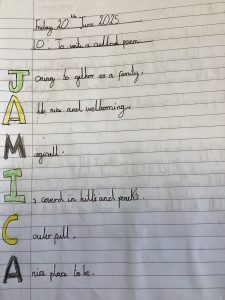 Friday 20th June 2025
O: To write a poem
Joing to gether as a family.
All nise and wellcoming
Magicall.
Is coverd in hills and peack's.
Couler full.
A nise place to be.